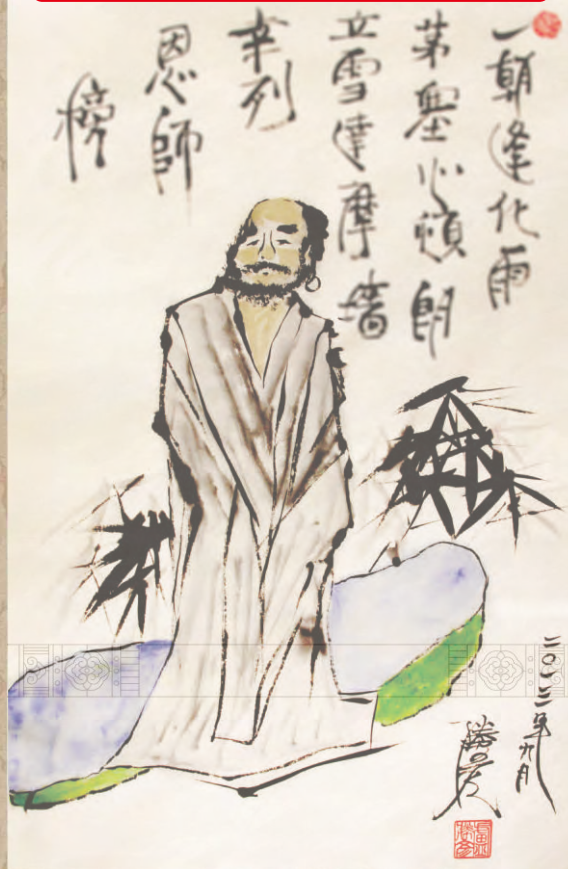 一朝逢化雨
茅塞心頓朗
立雪達摩墻
幸列
恩師
榜
二〇一三年九月
勝